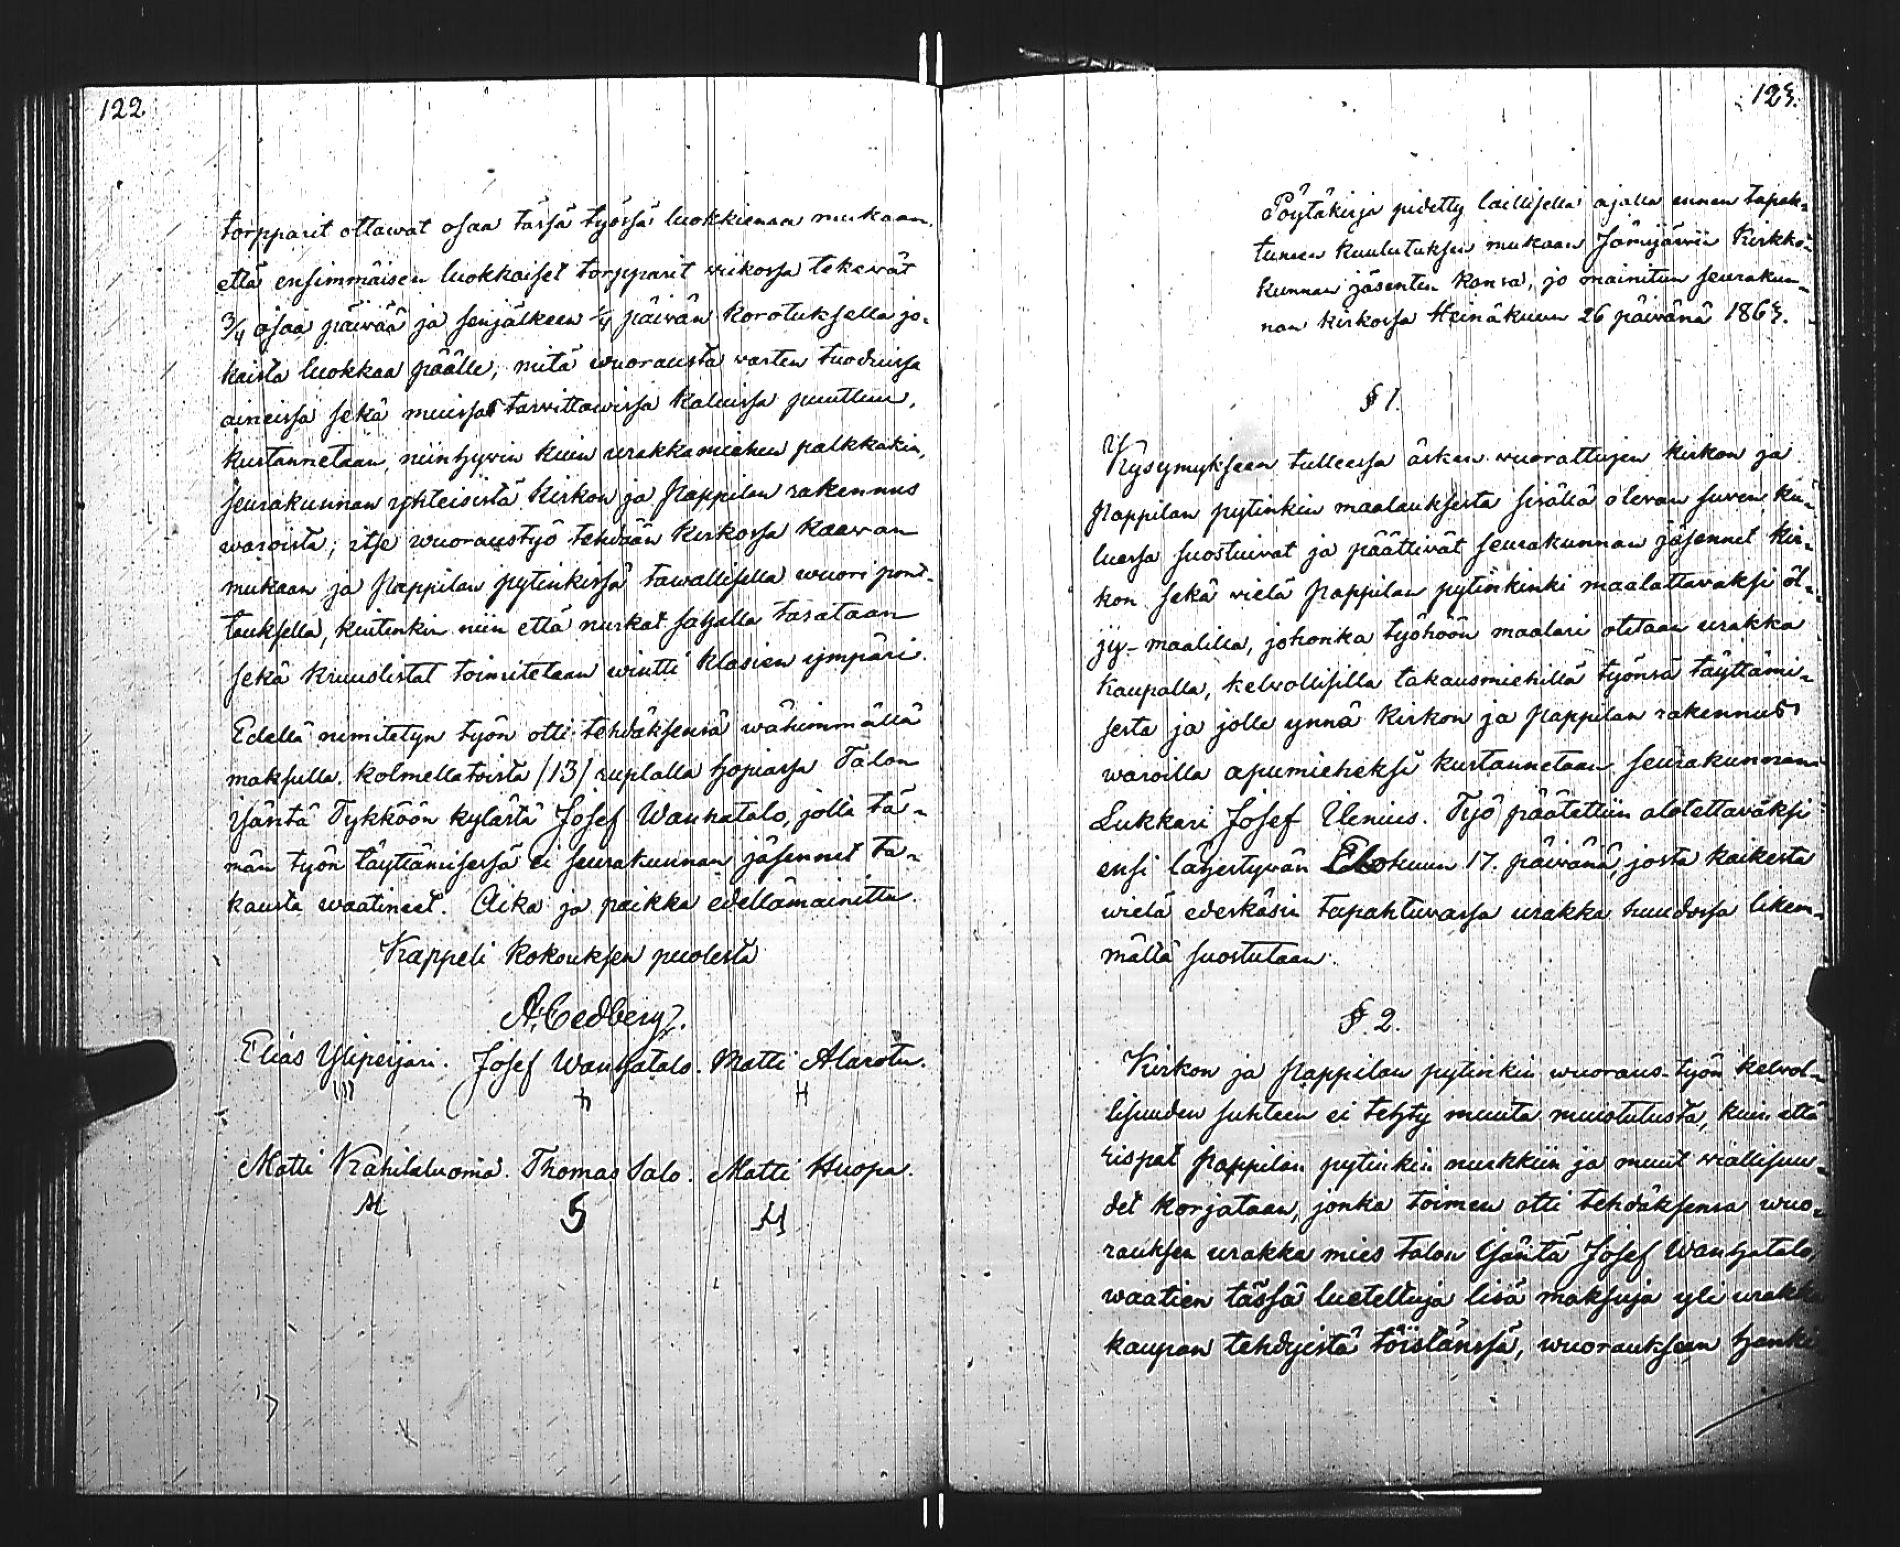 122
torpparit ottawat osaa tässä työssä luokkiensa mukaan,
että ensimmäisen luokkaiset torpparit wiikossa tekewät
3/4 osaa päiwää ja senjälkeen 1/4 päiwän korotuksella jo-
kaista luokkaa päälle, mitä wuorausta warten tuoduissa
aineissa sekä muissa tarwittawissa kaluissa puuttuu,
kustannetaan, niinhywin kuin urakkamiehen palkkakin,
seurakunnan yhteisistä Kirkon ja Pappilan rakennus
waroista; itse wuoraustyö tehdään Kirkossa kaawan
mukaan ja Pappilan pytinkissä tawallisella wuori pont-
tauksella, kuitenkin niin että nurkat sahalla tasataan
sekä kruuslistat toimitetaan wintti klasien ympäri.
Edellä nimitetyn työn otti tehdäksensä wähimmällä
maksulla kolmellatoista /13/ ruplalla hopiassa Talon
Isäntä Tykköön kylästä Josef Wanhatalo, jolta tä-
män työn täyttämisessä ei seurakunnan jäsennet ta-
kausta waatineet. Aika ja paikka edellämainittu.
Kappeli kokouksen puolesta
A. Cedberg.
Elias Yliperjari. Josef Wanhatalo. Matti Alarotu.
H
Matti Kahilaluoma. Thomas Salo. Matti Huopa.
M
123.
Pöytäkirja pidetty laillisella ajalla ennen tapah-
tuneen kuulutuksen mukaan Jämijärwin Kirkko-
kunnan jäsenten kansa, jo mainitun seurakun-
nan kirkossa Heinäkuun 26 päiwänä 1863.
§ 1.
Kysymykseen tulleessa äsken wuorattujen kirkon ja
Pappilan pytinkin maalauksesta sisällä olewan suwen ku-
luessa suostuivat ja päättivät seurakunnan jäsennet kir-
kon sekä wielä Pappilan pytinkinki maalattavaksi öl-
jy-maalilla, johonka työhöön maalari otetaan urakka
kaupalla, kelwollisilla takausmiehillä työnsä täyttämi-
sestä ja jolle ynnä kirkon ja Pappilan rakennus
waroilla apumieheksi kustannetaan seurakunnan
Lukkari Josef Ilenius. Työ päätettiin alotettawaksi
ensi lähestywän Elokuun 17. päiwänä, josta kaikesta
wielä edeskäsin tapahtuwassa urakka huudossa likem-
mältä suostutaan.
§ 2.
Kirkon ja Pappilan pytinkin wuoraus-työn kelwol-
lisuuden suhteen ei tehty muuta muistutusta, kuin että
rispat Pappilan pytinkin nurkkiin ja muut wiallisuu-
det korjataan, jonka toimen otti tehdäksensä wuo-
rauksen urakka mies talon Isäntä Josef Wanhatalo,
waatien tässä lueteltuja lisä maksuja yli urakka
kaupan tehdyistä töistänsä, wuoraukseen hanki